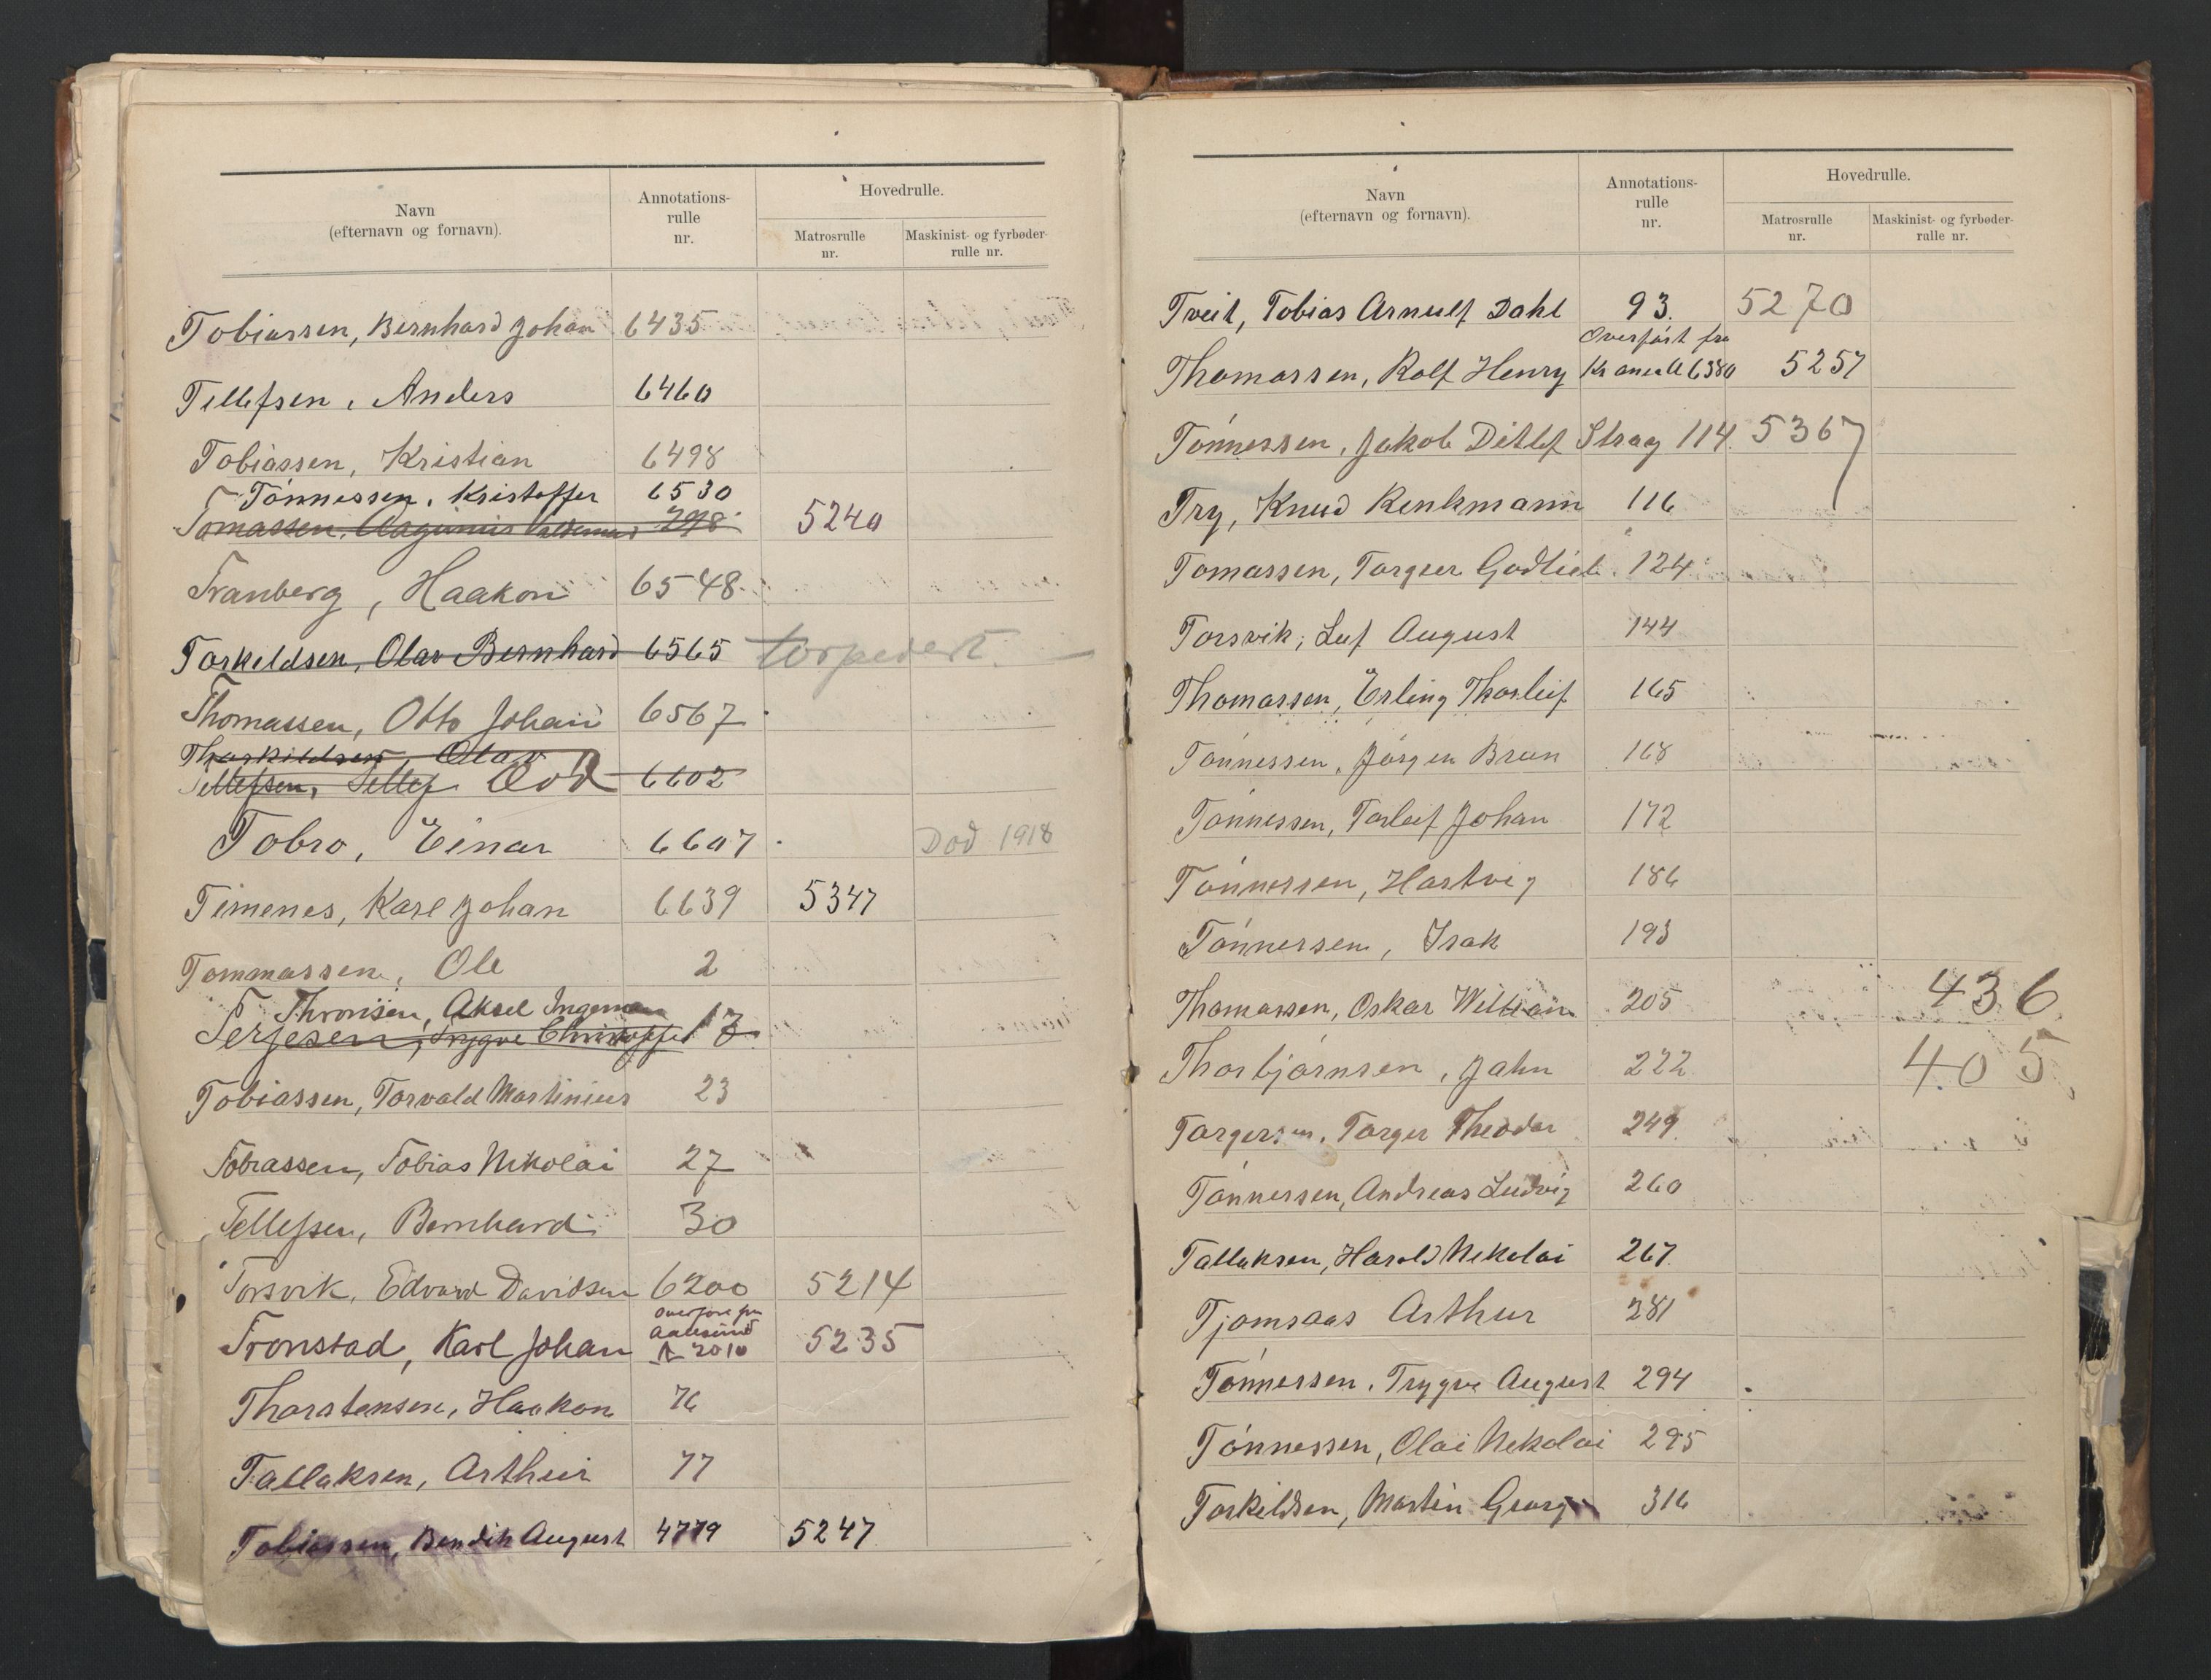 Navn
(efternavn og fornavn).
Annotations-
rulle
nr.
Hovedrulle.
Matrosrulle
nr.
Maskinist- og fyrbøder-
rulle nr.
Tobiassen, Bernhard Johan 6435
Tellefsen, Anders 6460
Tobiassen, Kristian 6498
Tónnessen, Kristoffer 6530
Tomassen, 298 5240
Tranberg, Haakon 6548
Torkeldsen, Olav Bernhard 6565 torpedert.
Thomassen, Otto Johan 6567
Thorkildsen, Olav
Tellefsen, Tellef Död 6602
Tobro, Einar 6607 Död 1918
Timenes, Karl Johan 6639 5347
Tommassen, Ole 2
Thronsen, Aksel Ingeman
Terjesen, Trygve Christoffer 17
Tobiassen, Torvald Martinius 23
Tobiassen, Tobias Nikolai 27
Tellefsen, Bernhard 30
Torsvik, Edvard Davidsen 6200 5214
overfört fra
Aalesund
Tronstad, Karl Johan A 2010 5235
Thorstensen, Haakon 76
Tallaksen, Arthur 77
Tobiassen, Bendik August 4779 5247
Navn
(efternavn og fornavn).
Annotations-
rulle
nr.
Hovedrulle.
Matrosrulle
nr.
Maskinist- og fyrbøder-
rulle nr.
Tveit, Tobias Arnulf Dahl 93. 5270
Overfört fra
Thomassen, Rolf Henry 6380 5257
Tónnessen, Jakob Ditlef Strag 114. 5367
Try, Knud Renkmann 116
Tomassen, Torgeir Godtlieb. 124
Torsvik, Leif August 144
Thomassen, Erling Thorleif 165
Tónnessen, Jörgen Bruun 168
Tónnessen, Torleif Johan 172
Tónnessen, Hartvig 186
Tónnessen, Isak 193
Thomassen, Oskar William 205 436
Thorbjörnsen, John 222 405
Torgersen, Torger Theodor 249
Tónnessen, Andreas Ludvig 260
Tallaksen, Harald Nikolai 267
Tjomsaas Arthur 281
Tónnessen, Trygve August 294
Tónnessen, Olai Nikolai 295
Torkildsen, Martin Georg 316